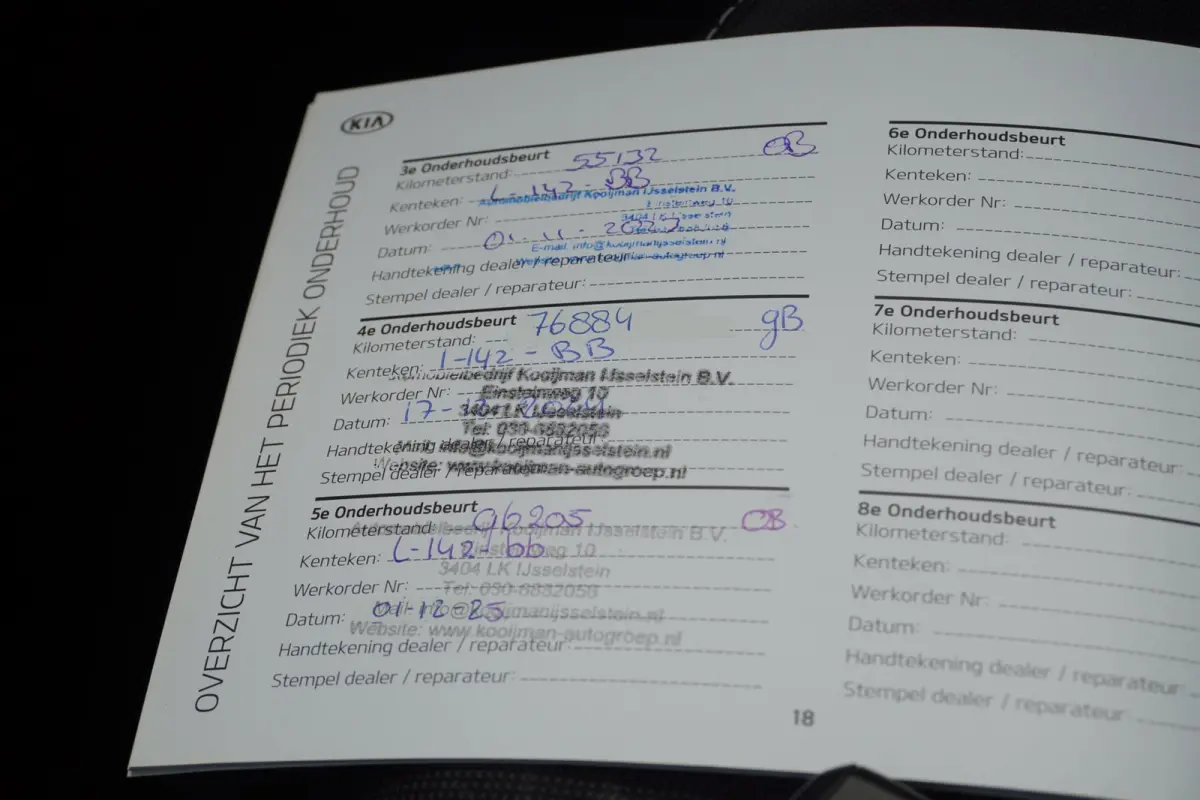 KIA
OVERZICHT VAN HET PERIODIEK ONDERHOUD
3e Onderhoudsbeurt
Kilometerstand: 55132 GB
Kenteken: L-142-BB
Automobielbedrijf Kooijman IJsselstein B.V.
Werkorder Nr:
3404 LK IJsselstein
Datum: 01-11-2023
E-mail: info@kooijmanijsselstein.nl
Handtekening dealer / reparateur:
Stempel dealer / reparateur:
4e Onderhoudsbeurt
Kilometerstand: 76884 gB
Kenteken: L-142-BB
Automobielbedrijf Kooijman IJsselstein B.V.
Werkorder Nr:
Einsteinweg 10
Datum: 17-12-2024
3404 LK IJsselstein
Tel: 030-6882056
Handtekening dealer / reparateur:
Mail: info@kooijmanijsselstein.nl
Website: www.kooijman-autogroep.nl
Stempel dealer / reparateur:
5e Onderhoudsbeurt
Kilometerstand: 96205 GB
Automobielbedrijf Kooijman IJsselstein B.V.
Kenteken: L-142-bb
Einsteinweg 10
3404 LK IJsselstein
Werkorder Nr:
Tel: 030-6882056
Datum: 01-12-25
Mail: info@kooijmanijsselstein.nl
Website: www.kooijman-autogroep.nl
Handtekening dealer / reparateur:
Stempel dealer / reparateur:
18
6e Onderhoudsbeurt
Kilometerstand:
Kenteken:
Werkorder Nr:
Datum:
Handtekening dealer / reparateur:
Stempel dealer / reparateur:
7e Onderhoudsbeurt
Kilometerstand:
Kenteken:
Werkorder Nr:
Datum:
Handtekening dealer / reparateur:
Stempel dealer / reparateur:
8e Onderhoudsbeurt
Kilometerstand:
Kenteken:
Werkorder Nr:
Datum:
Handtekening dealer / reparateur:
Stempel dealer / reparateur: